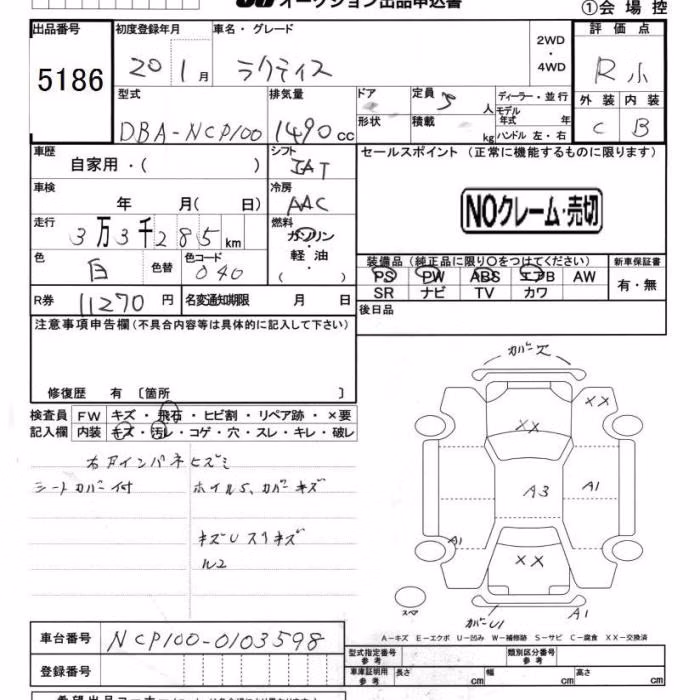 オークション出品申込書
①会 場 控
出品番号
5186
初度登録年月
20 1月
車名・グレード
ラクティス
2WD
・
4WD
評 価 点
R小
型式
DBA-NCP100
排気量
1490cc
ドア
形状
定員 5 人
積載 kg
ディーラー・並行
モデル年式 年
ハンドル 左・右
外 装
C
内 装
B
車歴
自家用・( )
シフト
IAT
セールスポイント (正常に機能するものに限ります)
車検
年 月( 日)
冷房
AAC
NOクレーム・売切
走行
3万3千285km
燃料
ガソリン
軽 油
( )
色
白
色替
色コード
040
装備品(純正品に限り○をつけてください)
PS PW ABS エアB AW
SR ナビ TV カワ
新車保証書
有・無
R券 11270 円
名変通知期限 月 日
後日品
注意事項申告欄(不具合内容等は具体的に記入して下さい)
修復歴 有 〔箇所 〕
検査員 FW キズ・飛石・ヒビ割・リペア跡・×要
記入欄 内装 キズ・汚レ・コゲ・穴・スレ・キレ・破レ
右Fインパネヒズミ
シートカバー付
ホイルS、カバーキズ
キズUスリキズ
ル2
カバーズ
XX
XX
A3
A1
A1
XX
スペア
カバーU1
A1
A-キズ E-エクボ U-凹み W-補修跡 S-サビ C-腐食 XX-交換済
車台番号 NCP100-0103598
登録番号
型式指定番号
参 考
類別区分番号
参 考
車庫証明用
参 考
長さ cm
幅 cm
高さ cm